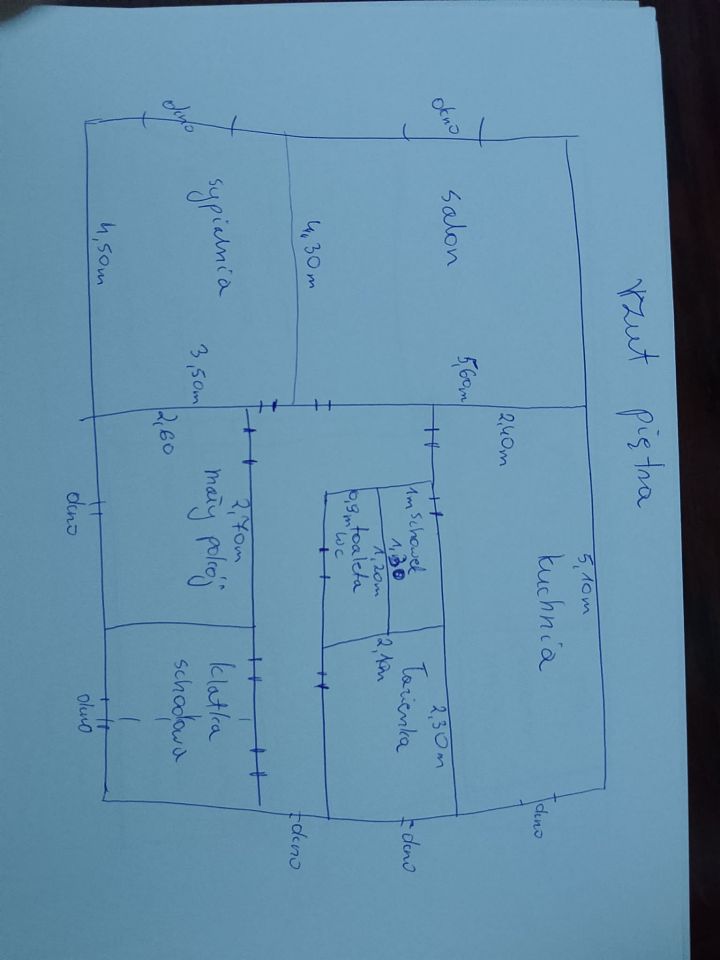 Rzut piętra
okno
okno
salon
5,60m
4,30m
sypialnia
4,50m
3,50m
2,40m
5,10m
kuchnia
okno
1m schowek
1,30
1,20m
0,9m toaleta
wc
Łazienka
2,30m
2,10m
okno
okno
2,60
mały pokój
2,70m
okno
klatka
schodowa
okno